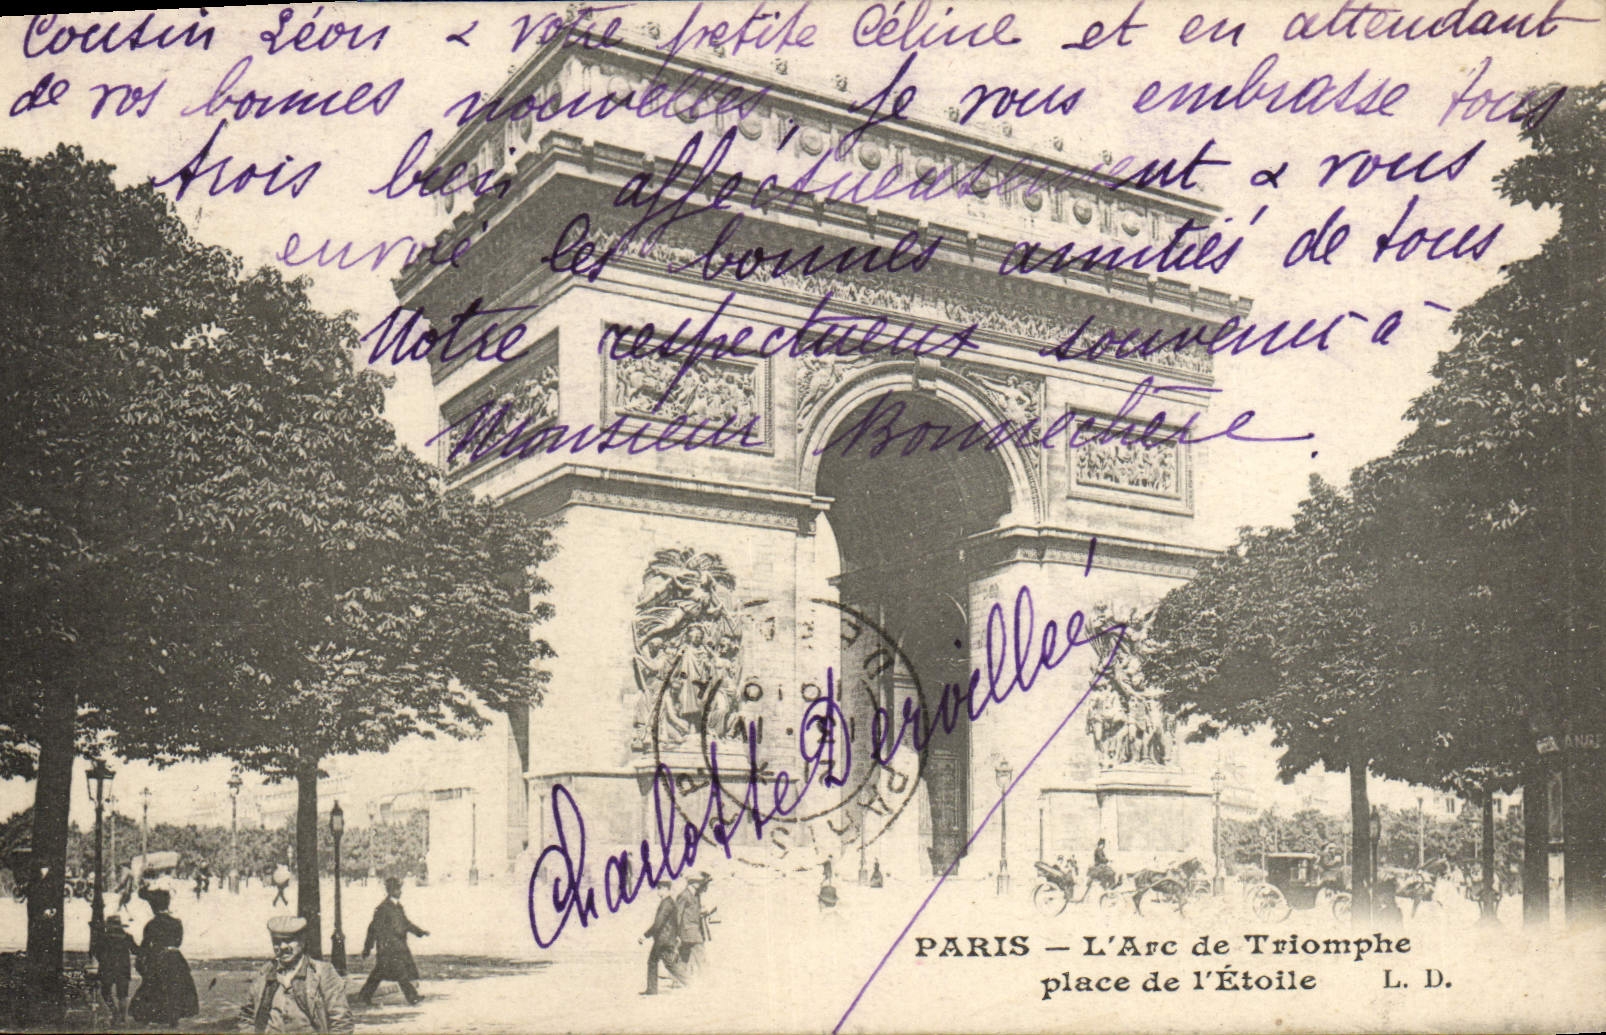 Cousin Léon & votre petite Céline et en attendant
de vos bonnes nouvelles, je vous embrasse tous
trois bien affectueusement & vous
envoie les bonnes amitiés de tous.
Notre respectueux souvenir à
Monsieur Bonnechère.
Charlotte Dervillé
PARIS – L'Arc de Triomphe
place de l'Étoile L. D.